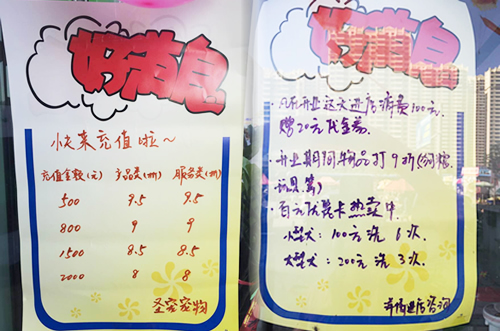 好消息
快来充值啦~
充值金额(元) 产品类(折) 服务类(折)
500 9.5 9.5
800 9 9
1500 8.5 8.5
2000 8 8
圣宠宠物
好消息
·凡在开业这天进店消费100元.
赠20元代金券.
·开业期间物品打9折(狗粮.
玩具等)
·百元优惠卡热卖中.
小型犬: 100元洗6次.
大型犬: 200元洗3次.
详情进店咨询